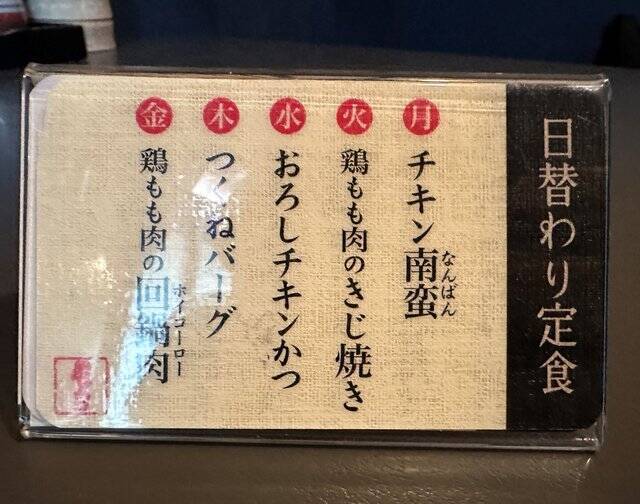 日替わり定食
月 チキン南蛮
なんばん
火 鶏もも肉のきじ焼き
水 おろしチキンかつ
木 つくねバーグ
金 鶏もも肉の回鍋肉
ホイコーロー